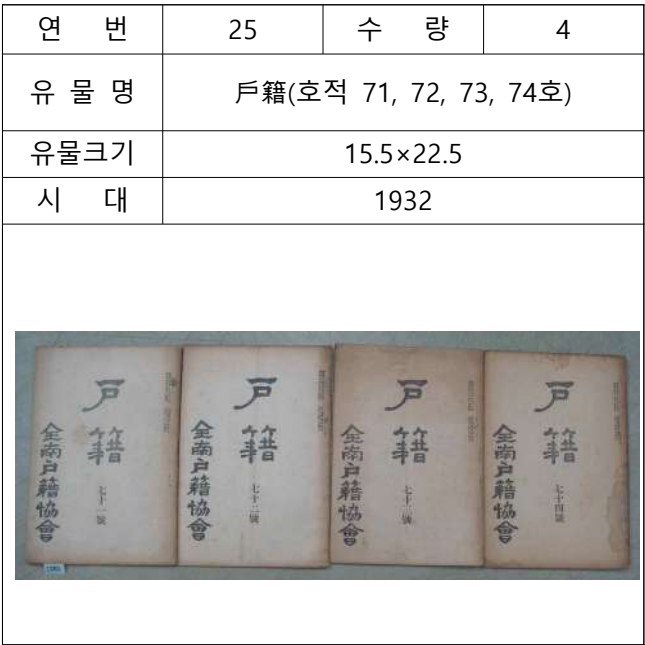 연 번 25 수 량 4
유 물 명 戶籍(호적 71, 72, 73, 74호)
유물크기 15.5×22.5
시 대 1932
戶籍
七十一號
全南戶籍協會
戶籍
七十二號
全南戶籍協會
戶籍
七十三號
全南戶籍協會
戶籍
七十四號
全南戶籍協會